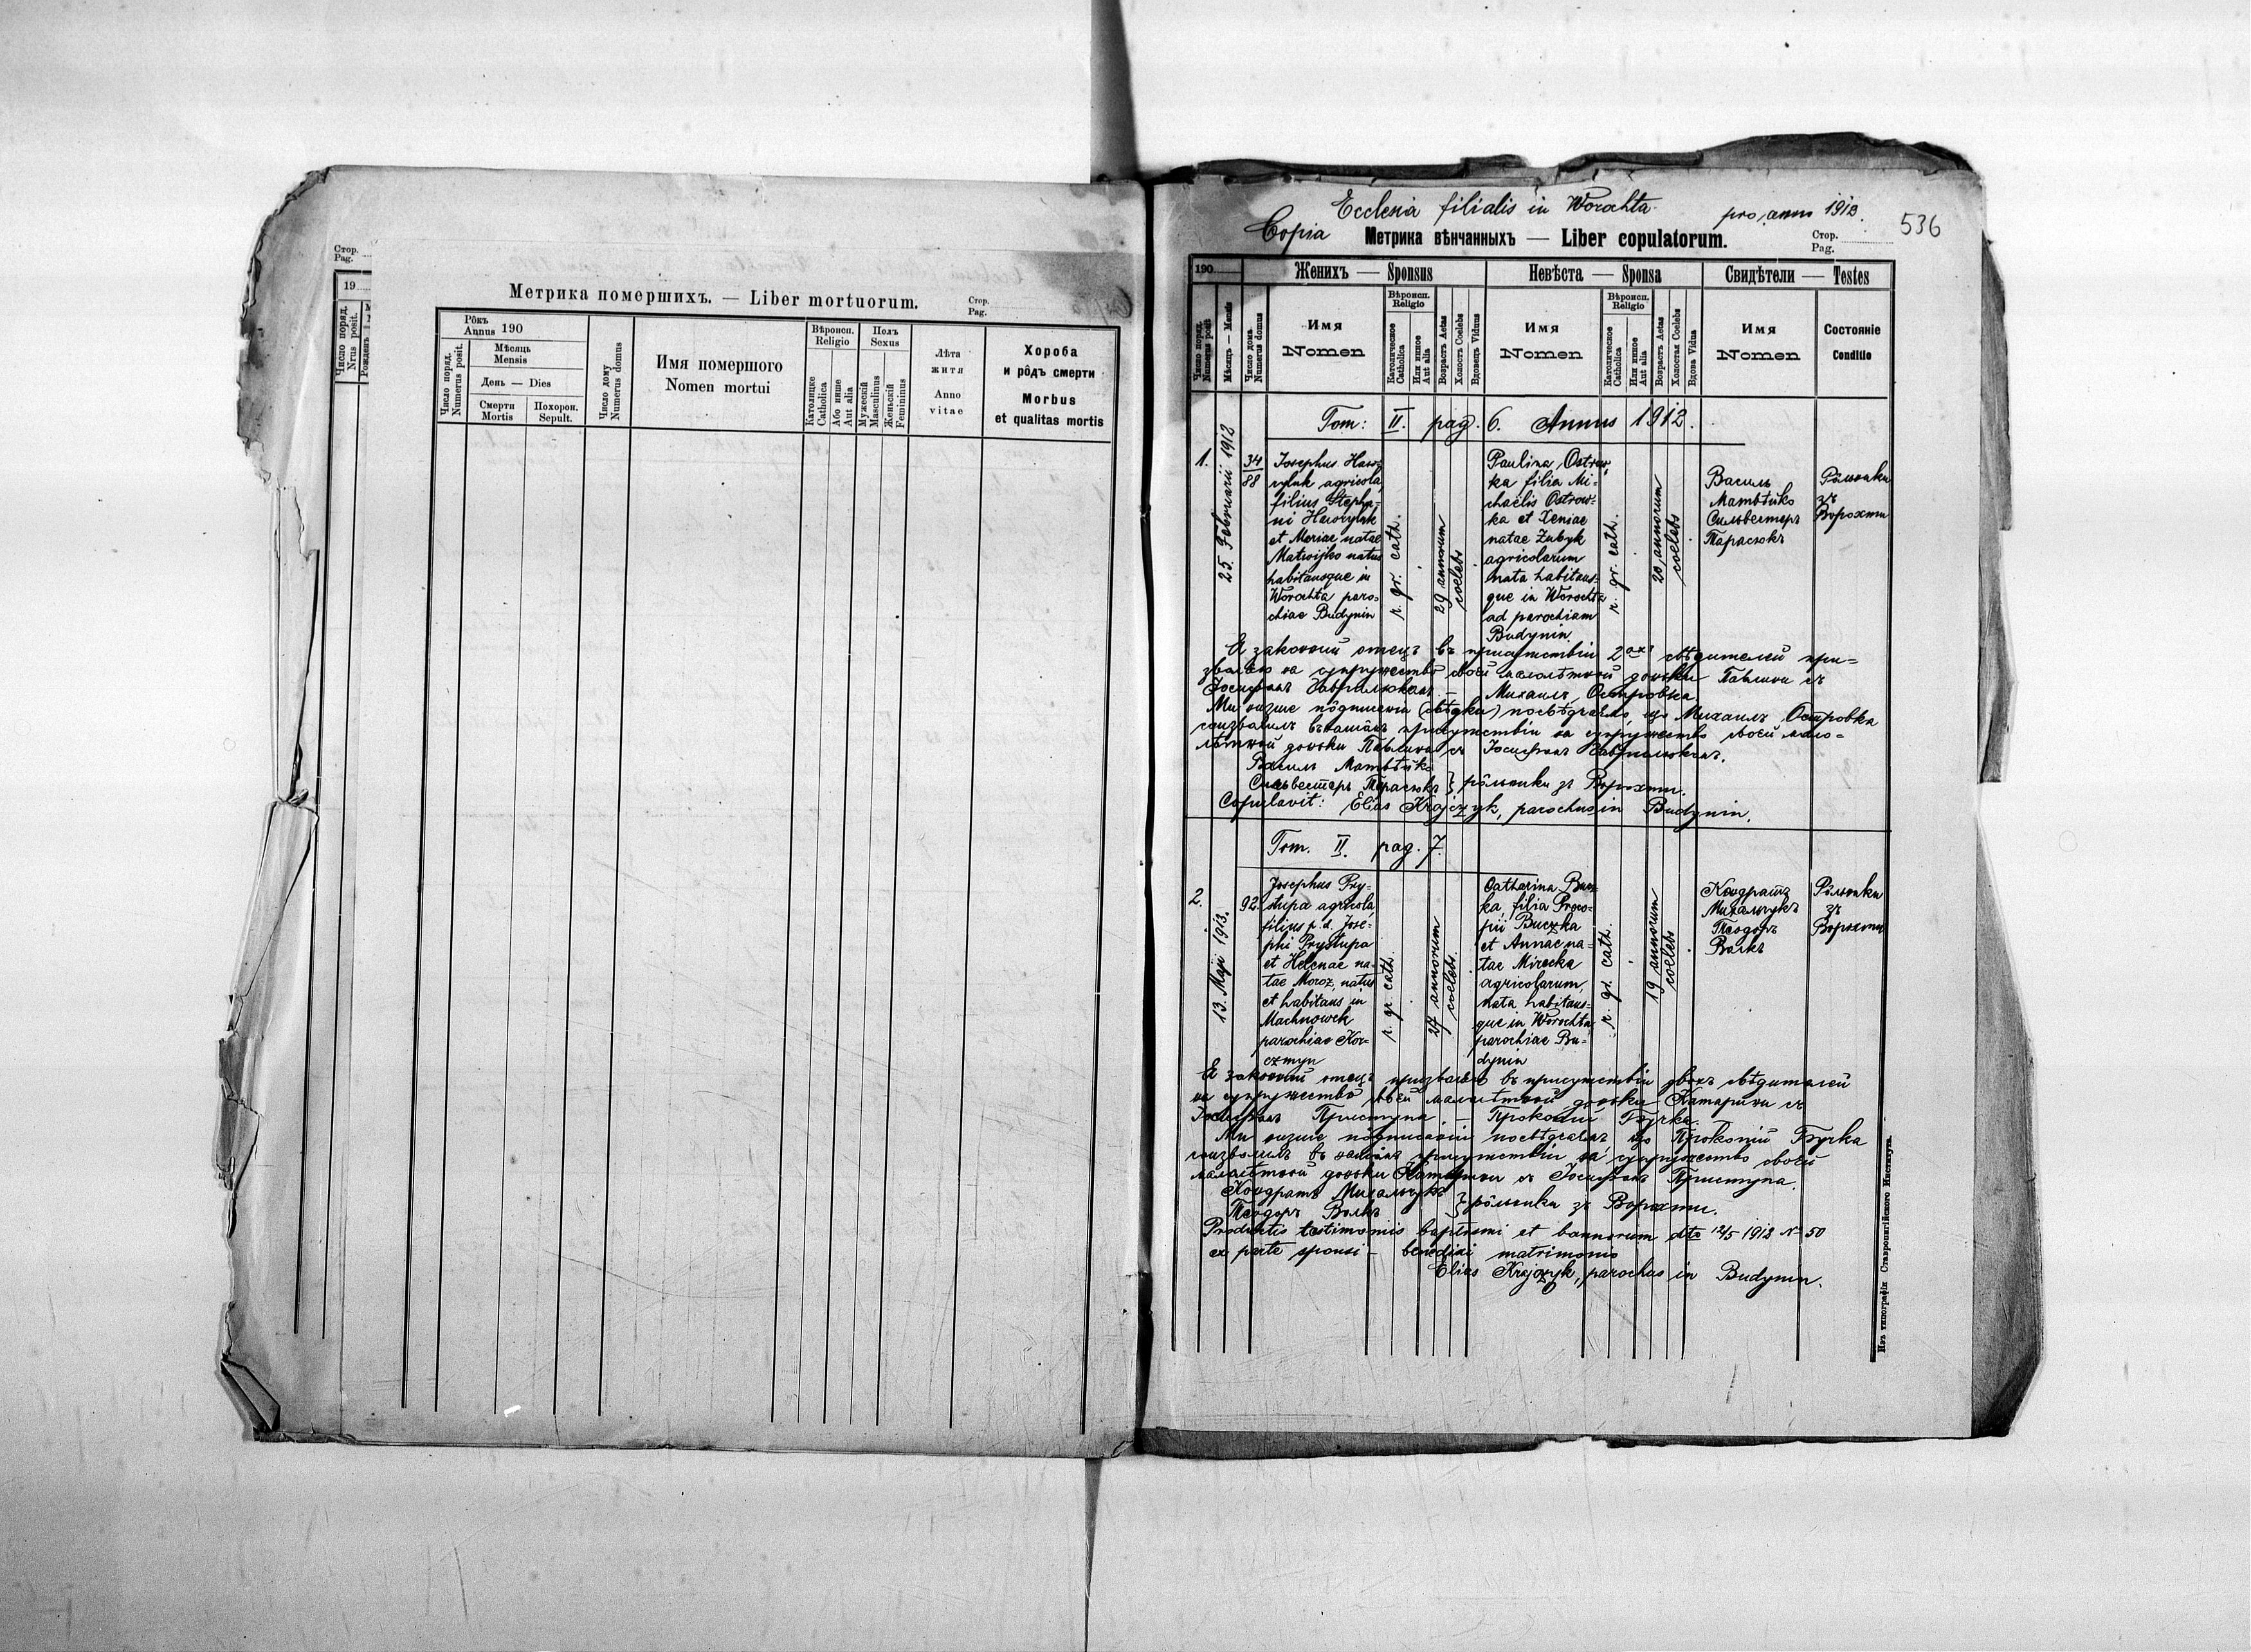 Стор.
Pag.
19
Число поряд.
Nrus posit.
Метрика помершихъ. — Liber mortuorum.
Стор.
Pag.
Рôкъ
Annus 190
Число поряд.
Numerus posit.
Мѣсяць
Mensis
День — Dies
Смерти
Mortis
Похорон.
Sepult.
Число дому
Numerus domus
Имя помершого
Nomen mortui
Вѣроисп.
Religio
Католицке
Catholica
Або инше
Aut alia
Полъ
Sexus
Мужескій
Masculinus
Женьскій
Femininus
Лѣта
житя
Anno
vitae
Хороба
и рôдъ смерти
Morbus
et qualitas mortis
Ecclesia filialis in Worochta pro anno 1913.
536
Copia Метрика вѣнчанныхъ — Liber copulatorum.
Стор.
Pag.
190
Женихъ — Sponsus
Невѣста — Sponsa
Свидѣтели — Testes
Число поряд.
Numerus posit
Мѣсяцъ — Mensis
Число дома
Numerus domus
Имя
Nomen
Вѣроисп.
Religio
Католическое
Catholica
Или иное
Aut alia
Возрастъ Aetas
Холостъ Coelebs
Вдовецъ Viduus
Имя
Nomen
Вѣроисп.
Religio
Католическое
Catholica
Или иное
Aut alia
Возрастъ Aetas
Холостая Coelebs
Вдова Vidua
Имя
Nomen
Состояніе
Conditio
Tom: II. pag. 6. Annus 1912.
1.
25. Februarii 1912
34
88
Josephus Haw=
rylak agricola,
filius Stepha=
ni Hawrylak
et Mariae natae
Matwijko natus
habitansque in
Worochta paro=
chiae Budynin
r. gr. cath.
29 annorum
coelebs
Paulina Ostrow=
ka filia Mi=
chaëlis Ostrow=
ka et Xeniae
natae Zubyk
agricolarum
nata habitans=
que in Worochta
ad parochiam
Budynin.
r. gr. cath.
20 annorum
coelebs
Василь
Матвѣйко
Сильвестеръ
Тарасюкъ
Рôльники
зъ
Ворохти
Я законний отецъ въ присутствіи 2охъ свѣдителей при=
зваляю на супружество своєй малолѣтной доньки Павлини съ
Іосифомъ Гаврилюкомъ. — Михаилъ Островка.
Ми низше пôдписаніи (свѣдки) посвѣдчаемо, що Михаилъ Островка
соизволилъ въ нашôмъ присутствіи на супружество своєй мало=
лѣтной доньки Павлини съ Іосифомъ Гаврилюкомъ.
Василь Матвѣйко
Сильвестеръ Тарасюкъ } рôльники зъ Ворохти.
Copulavit: Elias Krajczyk, parochus in Budynin.
Tom. II. pag. 7.
2.
13. Maji 1913.
92.
Josephus Pry=
stupa agricola,
filius p. d. Jose=
phi Prystupa
et Helenae na=
tae Moroz, natus
et habitans in
Machnowek
parochiae Kor=
czmyn
r. gr. cath.
27 annorum
coelebs.
Catharina Bucz=
ka filia Proco=
pii Buczka
et Annae na=
tae Mirocka
agricolarum,
nata habitans=
que in Worochta
parochiae Bu=
dynin
r. gr. cath.
19 annorum
coelebs
Кондратъ
Михальчукъ
Теодоръ
Волкъ
Рôльники
зъ
Ворохти
Я законний отецъ призваляю въ присутствіи двохъ свѣдителей
на супружество своєй малолѣтной доньки Катарини съ
Іосифомъ Приступа. — Прокопій Бучка.
Ми низше пôдписаніи посвѣдчаемъ що Прокопій Бучка
соизволилъ въ нашôмъ присутствіи на супружество своєй
малолѣтной доньки Катарини съ Іосифомъ Приступа.
Кондратъ Михальчукъ
Теодоръ Волкъ } рôльники зъ Ворохти.
Productis testimoniis baptismi et bannorum dto 12/5 1913 No 50
ex parte sponsi — benedixi matrimonio
Elias Krajczyk, parochus in Budynin.
Изъ типографіи Ставропигійского Института.